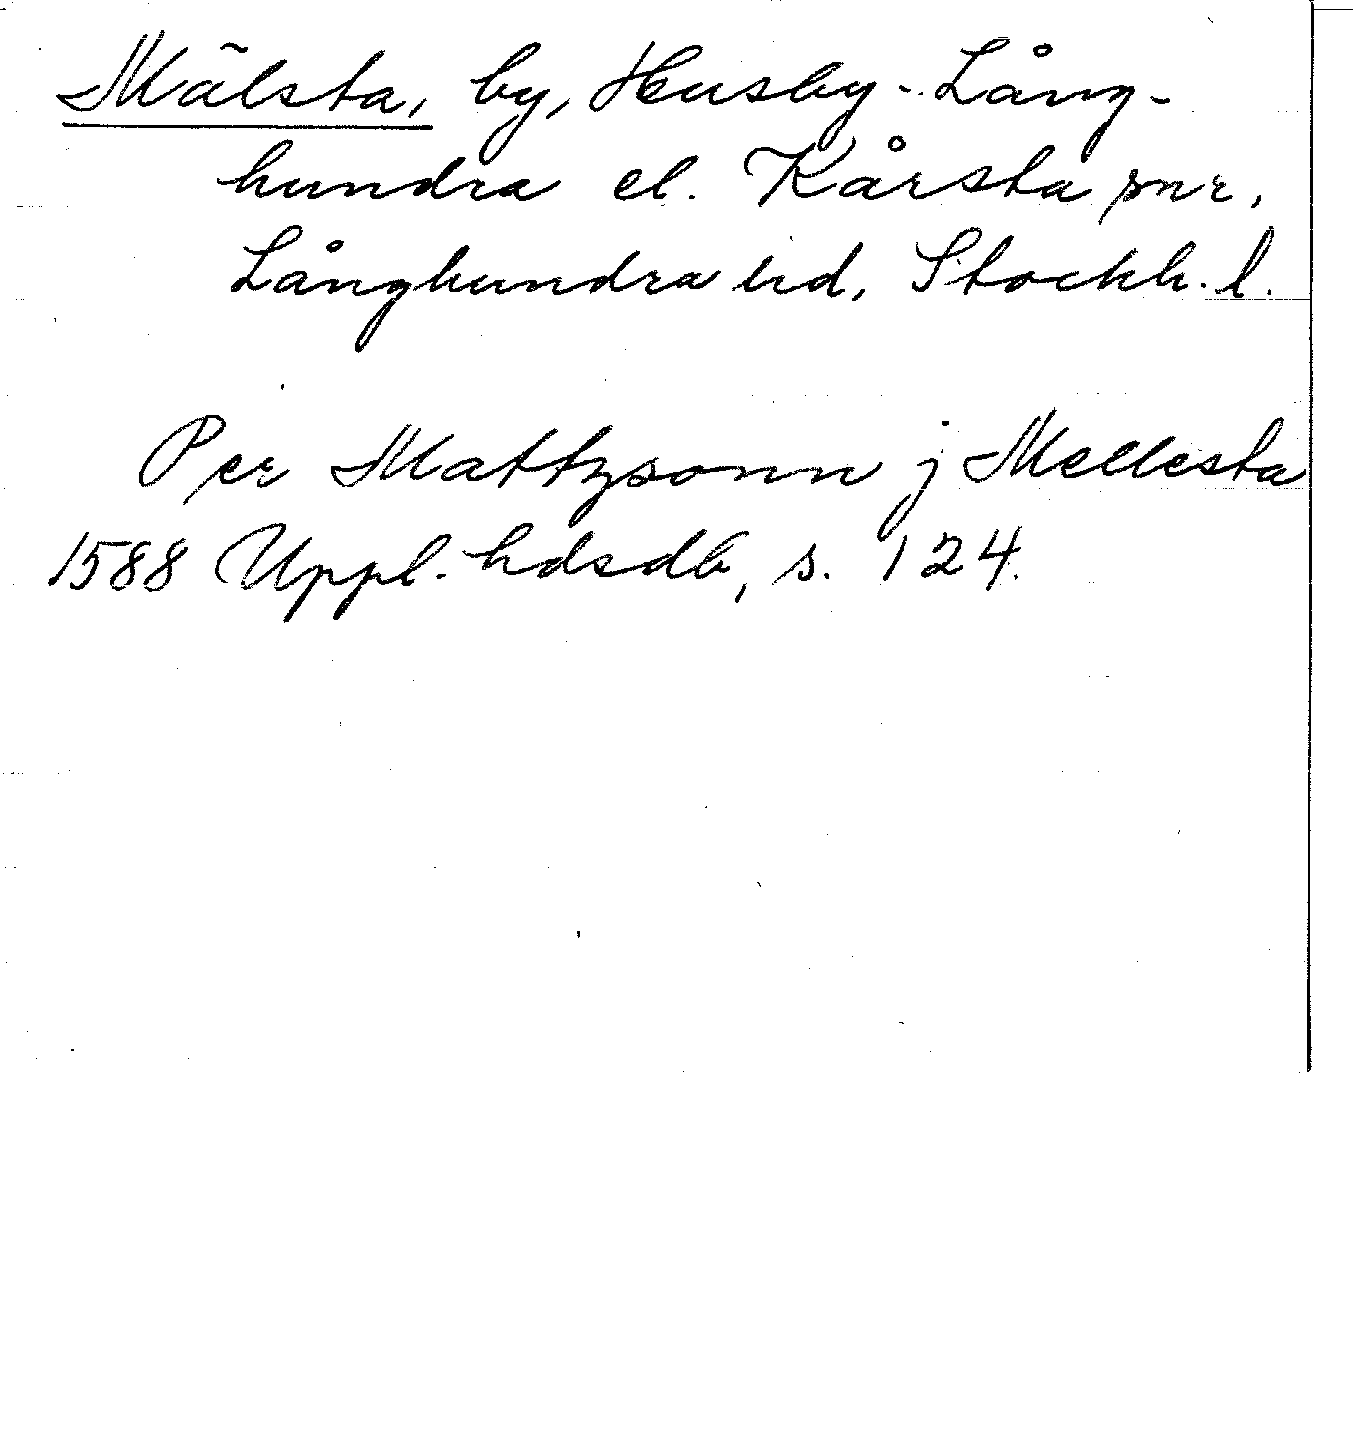 Mälsta, by, Husby-Lång-
hundra el. Kårsta snr,
Långhundra hd, Stockh. l.
Per Mattzsonn j Mellesta
1588 Uppl. hdsdb, s. 124.